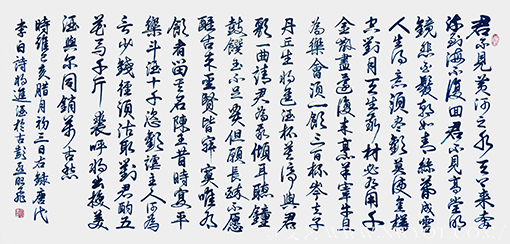 君不見黃河之水天上來奔
流到海不復回君不見高堂明
鏡悲白髮朝如青絲暮成雪
人生得意須盡歡莫使金樽
空對月天生我材必有用千
金散盡還復來烹羊宰牛且
為樂會須一飲三百杯岑夫子
丹丘生將進酒杯莫停與君
歌一曲請君為我傾耳聽鐘
鼓饌玉不足貴但願長醉不願
醒古來聖賢皆寂寞唯有
飲者留其名陳王昔時宴平
樂斗酒十千恣歡謔主人何為
言少錢徑須沽取對君酌五
花馬千金裘呼兒將出換美
酒與爾同銷萬古愁
時維己亥臘月初三日右錄唐代
李白詩將進酒於古彭